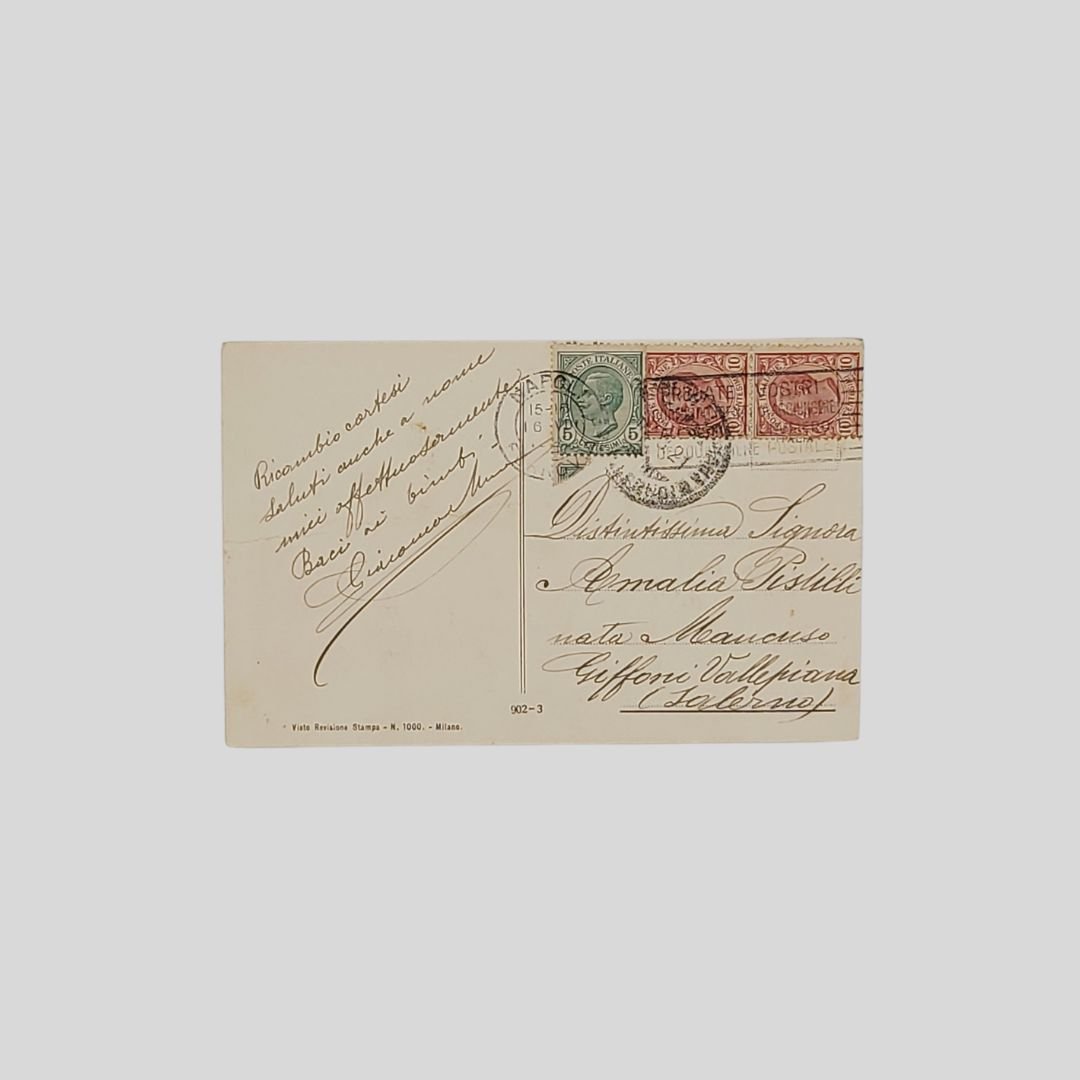 Ricambio cortesi
saluti anche a nome
miei affettuosamente,
Baci ai bimbi -
Giacomo
POSTE ITALIANE
5 CENTESIMI 5
10
10
NAPOLI
15-
16
POSTALE
Distintissima Signora
Amalia Pistilli
nata Mancuso
Giffoni Vallepiana
(Salerno)
902-3
Visto Revisione Stampa - N. 1000. - Milano.